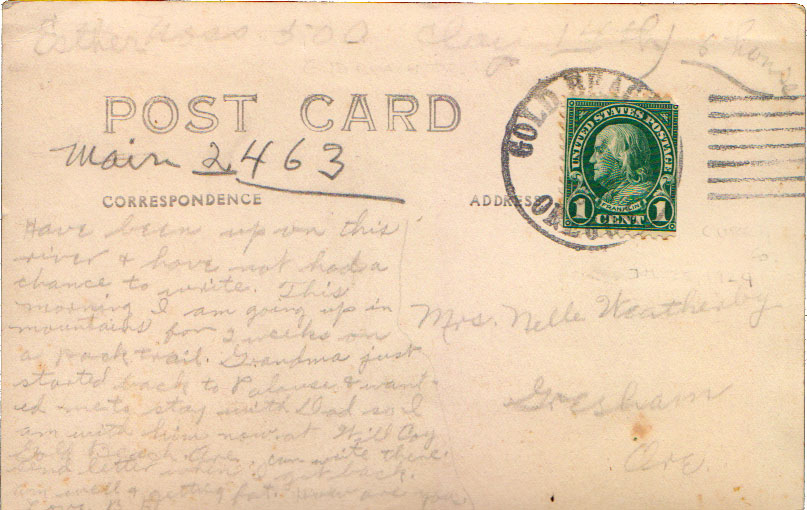 Esther Ross 500 Clay 14th & house
POST CARD
Main 2463
CORRESPONDENCE
ADDRESS
GOLD BEACH
OREGON
UNITED STATES POSTAGE
FRANKLIN
1 CENT 1
Have been up on this
river & have not had a
chance to write. This
morning I am going up in
mountains for 2 weeks on
a pack trail. Grandma just
started back to Palouse & want-
ed me to stay with Dad so I
am with him now at Hill Coy
Gold Beach Ore. can write there.
Send letter when I get back.
am well & getting fat. How are you
Love
Mrs. Nelle Weatherby
Gresham
Ore.